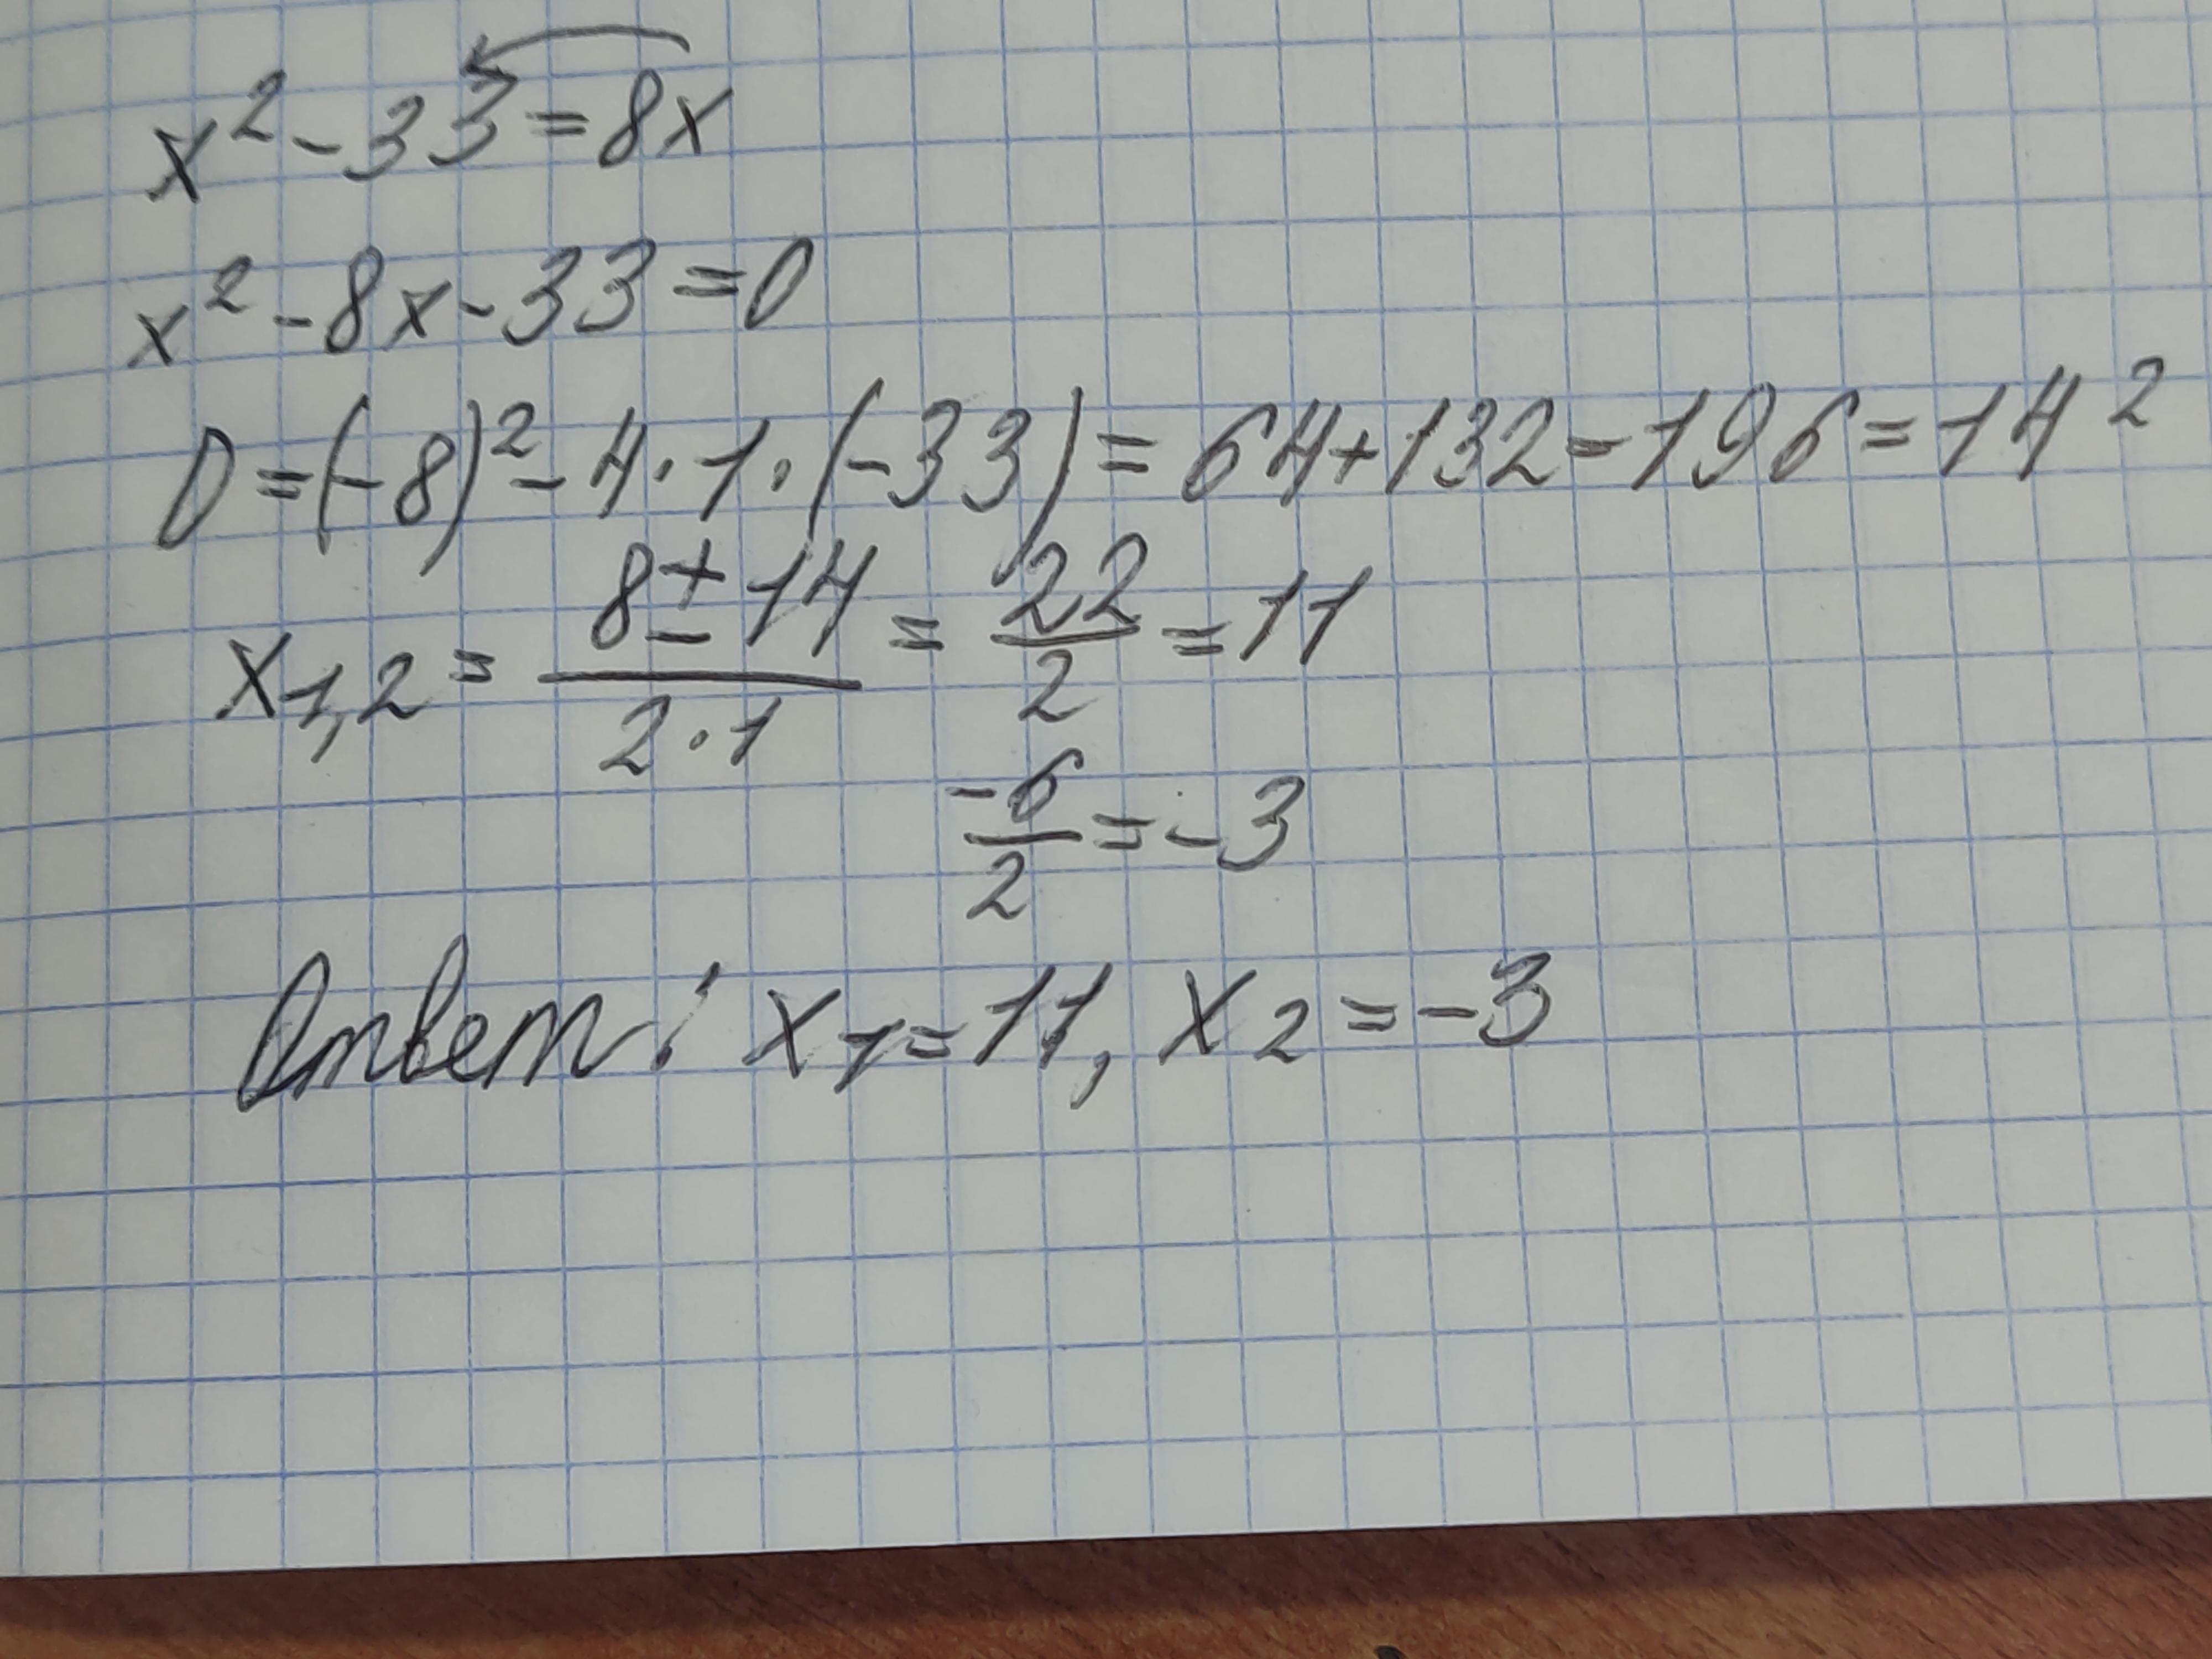 x² - 33 = 8x
x² - 8x - 33 = 0
D = (-8)² - 4 · 1 · (-33) = 64 + 132 = 196 = 14²
x₁,₂ = (8 ± 14)/(2 · 1) = 22/2 = 11
-6/2 = -3
Ответ: x₁ = 11, x₂ = -3